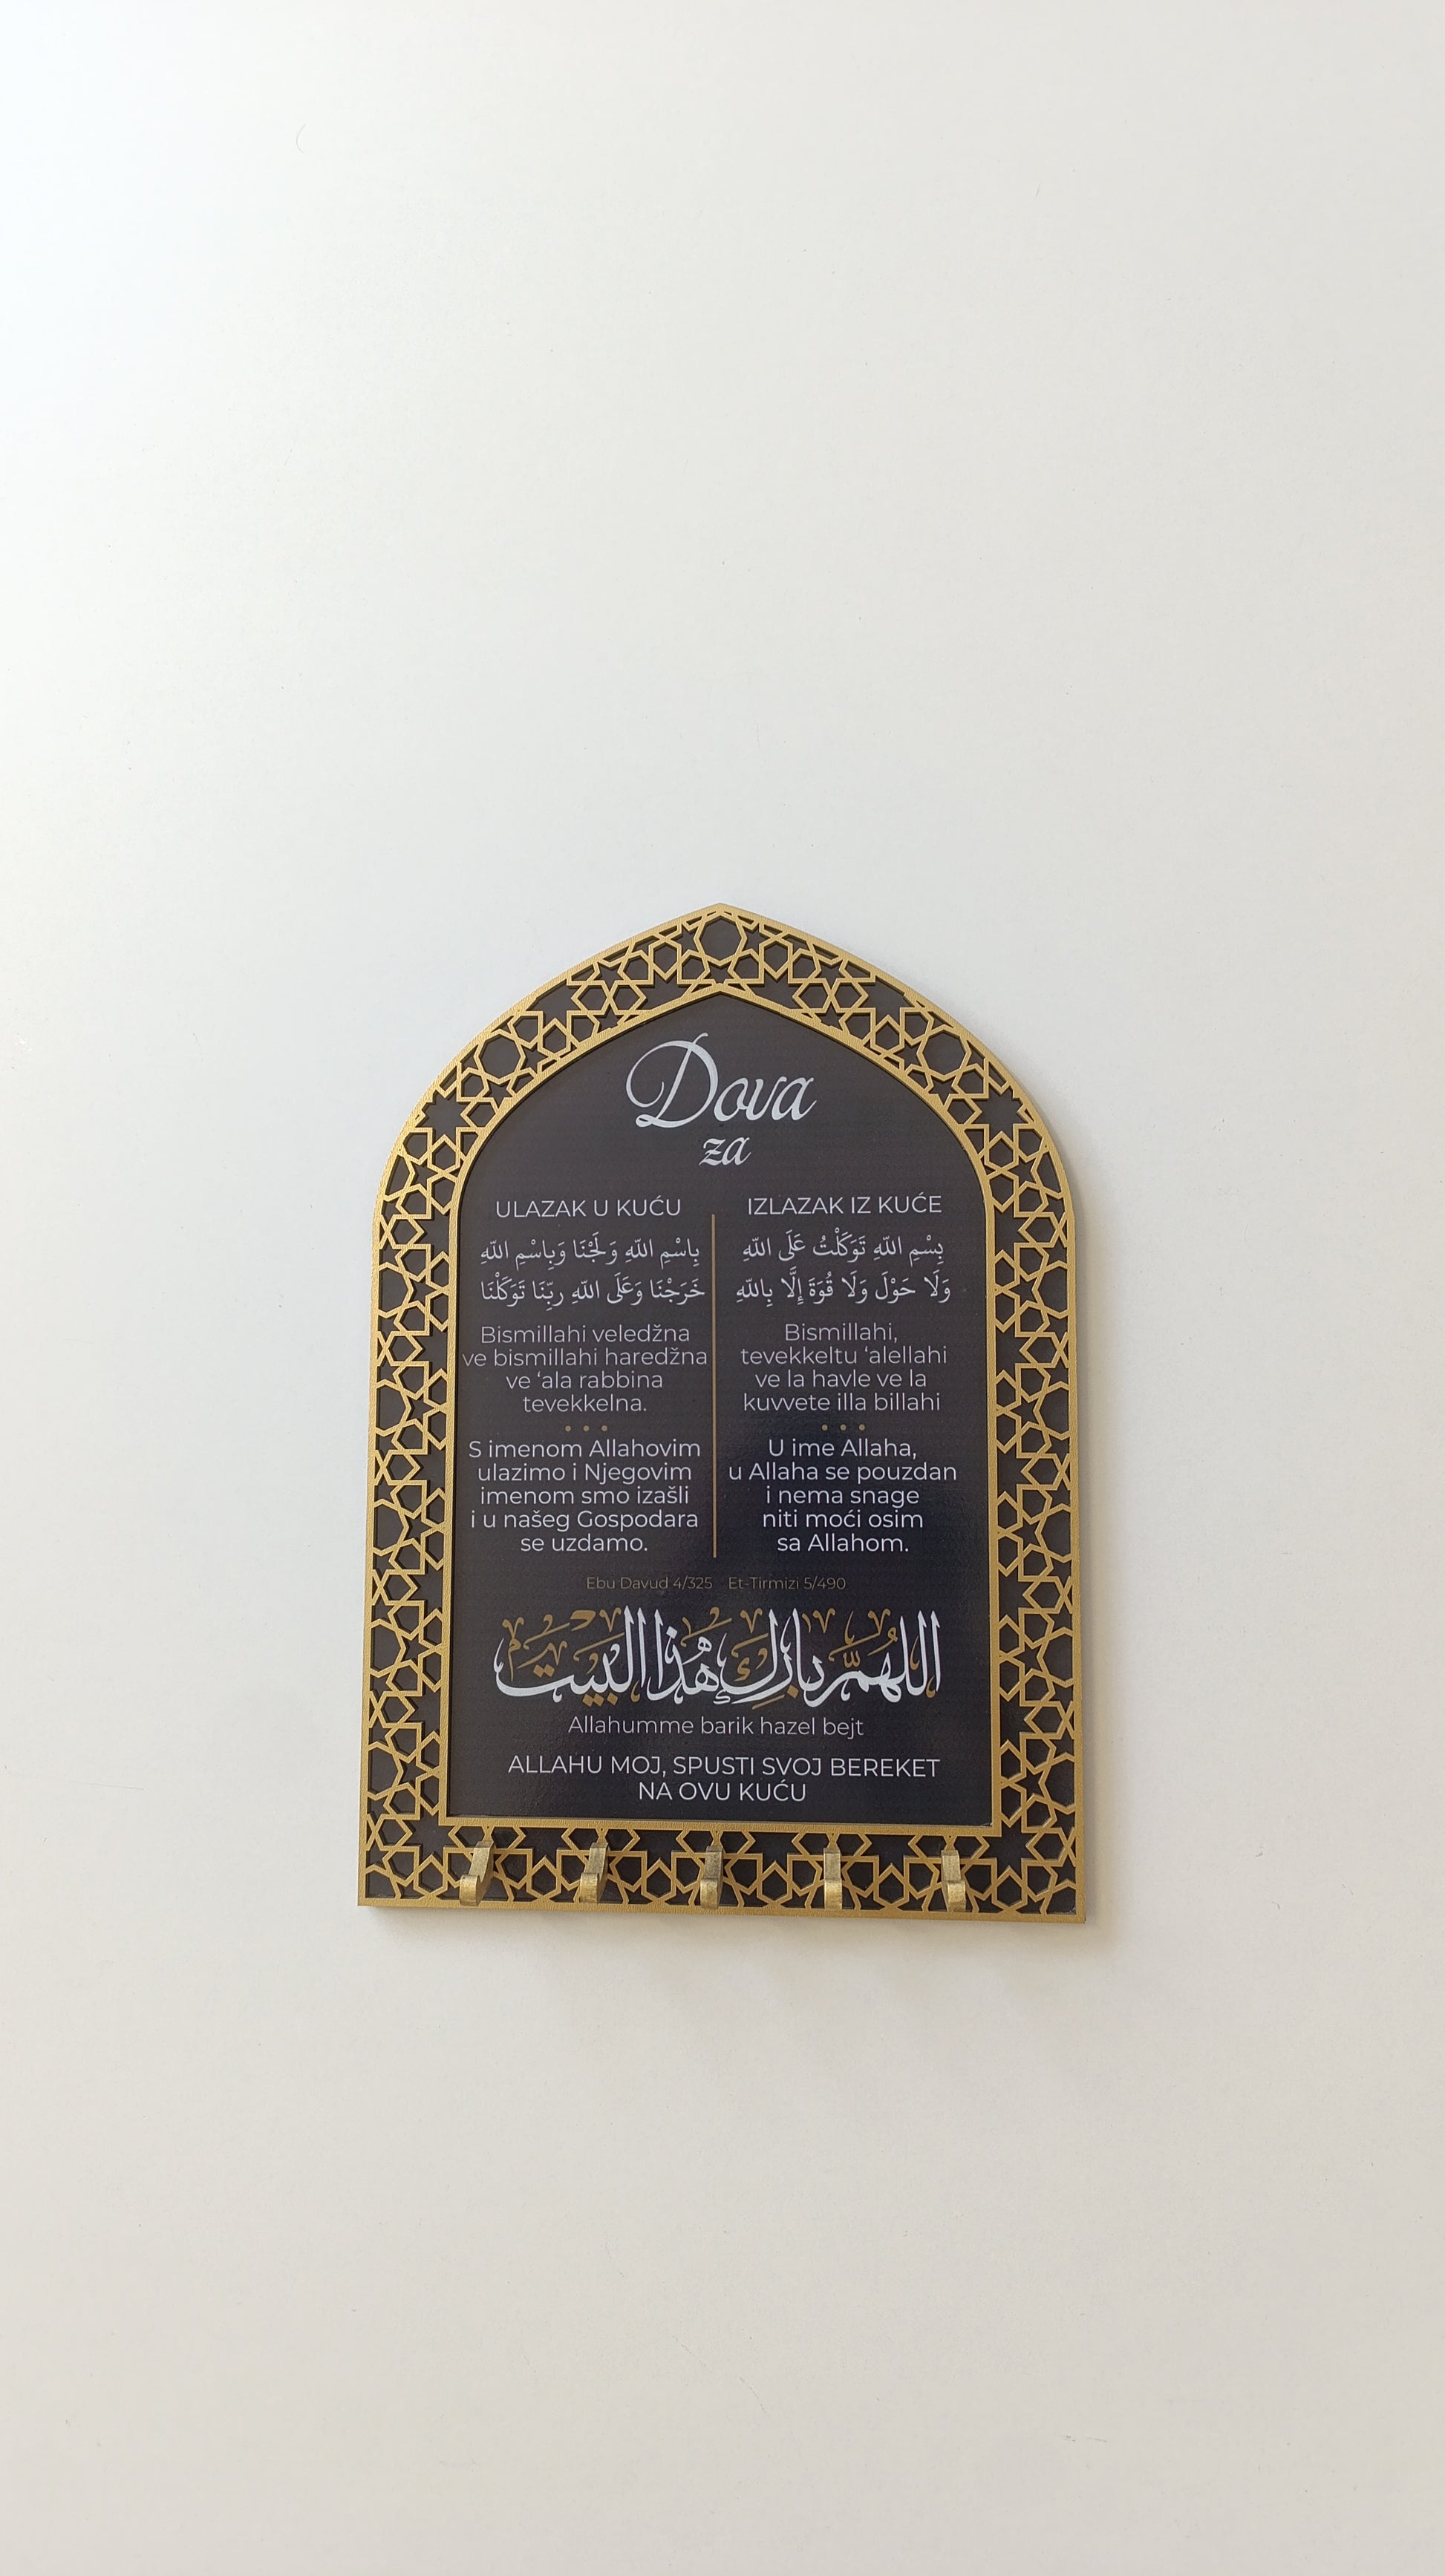 Dova
za
ULAZAK U KUĆU
بِاسْمِ اللهِ وَلَجْنَا وَبِاسْمِ اللهِ
خَرَجْنَا وَعَلَى اللهِ رَبِّنَا تَوَكَّلْنَا
Bismillahi veledžna
ve bismillahi haredžna
ve ‘ala rabbina
tevekkelna.
S imenom Allahovim
ulazimo i Njegovim
imenom smo izašli
i u našeg Gospodara
se uzdamo.
IZLAZAK IZ KUĆE
بِسْمِ اللهِ تَوَكَّلْتُ عَلَى اللهِ
وَلَا حَوْلَ وَلَا قُوَّةَ إِلَّا بِاللهِ
Bismillahi,
tevekkeltu ‘alellahi
ve la havle ve la
kuvvete illa billahi
U ime Allaha,
u Allaha se pouzdan
i nema snage
niti moći osim
sa Allahom.
Ebu Davud 4/325 Et-Tirmizi 5/490
اللهُمَّ بارِك هٰذا البيت
Allahumme barik hazel bejt
ALLAHU MOJ, SPUSTI SVOJ BEREKET
NA OVU KUĆU